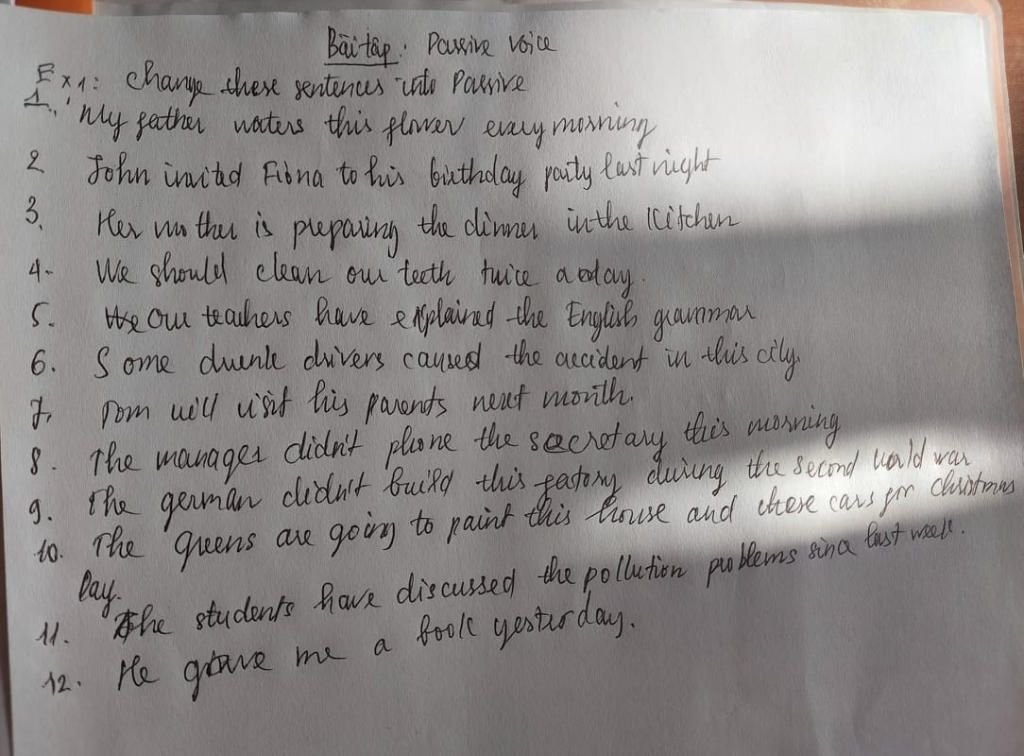 Bài tập: Passive voice
Ex1: Change these sentences into Passive
1. My father waters this flower every morning
2 John invited Fiona to his birthday party last night
3. Her mother is preparing the dinner in the kitchen
4. We should clean our teeth twice a day.
5. Our teachers have explained the English grammar
6. Some drunk drivers caused the accident in this city.
7. Tom will visit his parents next month.
8. The manager didn't phone the secretary this morning
9. The german didn't build this factory during the second world war
10. The greens are going to paint this house and these cars for christmas
Day.
11. The students have discussed the pollution problems since last week.
12. He gave me a book yesterday.